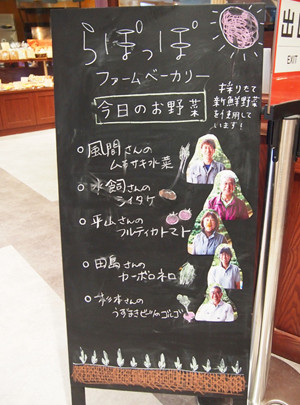 らぽっぽ
ファームベーカリー
今日のお野菜
採りたて
新鮮野菜
を使用して
います!
風間さんの
ムラサキ水菜
水飼さんの
シイタケ
平山さんの
フルティカトマト
田島さんの
カーボロネロ
杉本さんの
うずまきビーツ
EXIT